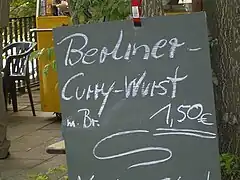 Berliner-
Curry-Wurst
m. Br. 1,50€